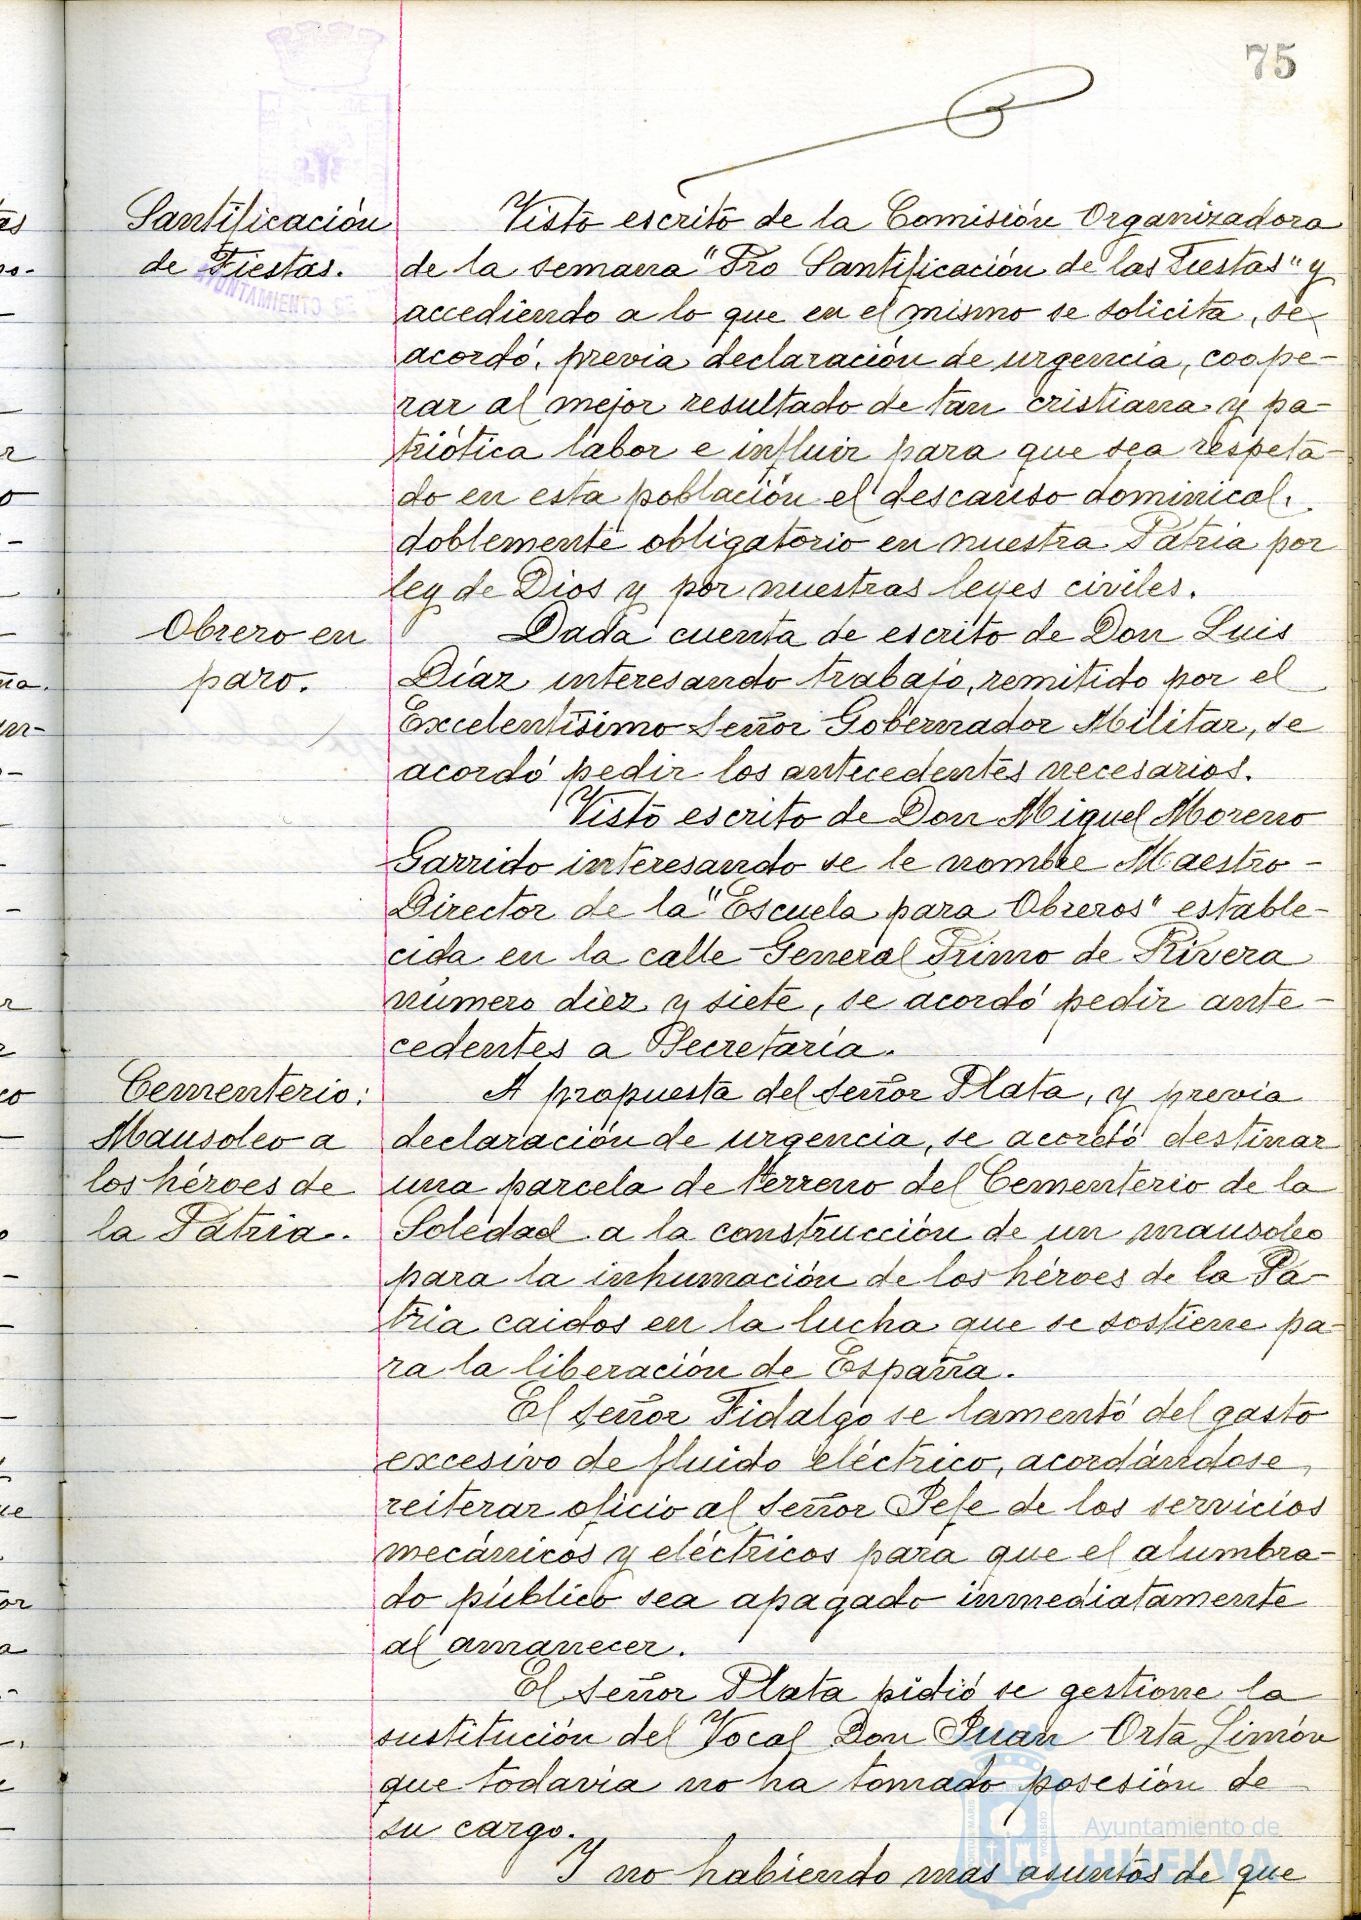 75
Santificación
de Fiestas.
Visto escrito de la Comisión Organizadora
de la semana "Pro Santificación de las Fiestas" y
accediendo a lo que en el mismo se solicita, se
acordó, previa declaración de urgencia, coope-
rar al mejor resultado de tan cristiana y pa-
triótica labor e influir para que sea respeta-
do en esta población el descanso dominical,
doblemente obligatorio en nuestra Patria por
ley de Dios y por nuestras leyes civiles.
Obrero en
paro.
Dada cuenta de escrito de Don Luis
Díaz interesando trabajo, remitido por el
Excelentísimo Señor Gobernador Militar, se
acordó pedir los antecedentes necesarios.
Visto escrito de Don Miguel Moreno
Garrido interesando se le nombre Maestro-
Director de la "Escuela para Obreros" estable-
cida en la calle General Primo de Rivera
número diez y siete, se acordó pedir ante-
cedentes a Secretaría.
Cementerio:
Mausoleo a
los héroes de
la Patria.
A propuesta del señor Plata, y previa
declaración de urgencia, se acordó destinar
una parcela de terreno del Cementerio de la
Soledad a la construcción de un mausoleo
para la inhumación de los héroes de la Pa-
tria caidos en la lucha que se sostiene pa-
ra la liberación de España.
El señor Fidalgo se lamentó del gasto
excesivo de fluido eléctrico, acordándose
reiterar oficio al señor Jefe de los servicios
mecánicos y eléctricos para que el alumbra-
do público sea apagado inmediatamente
al amanecer.
El señor Plata pidió se gestione la
sustitución del Vocal Don Juan Orta Limón
que todavía no ha tomado posesión de
su cargo.
Y no habiendo mas asuntos de que
AYUNTAMIENTO DE
Ayuntamiento de
HUELVA